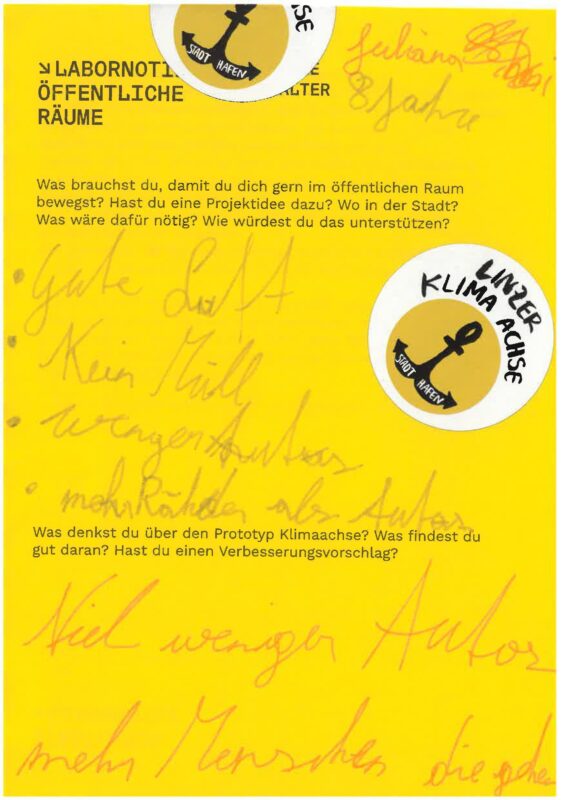 STADT HAFEN
Juliana
8 Jahre
LABORNOTI
ÖFFENTLICHE
RÄUME
Was brauchst du, damit du dich gern im öffentlichen Raum
bewegst? Hast du eine Projektidee dazu? Wo in der Stadt?
Was wäre dafür nötig? Wie würdest du das unterstützen?
• Gute Luft
• Kein Müll
• weniger Autos
• mehr Rähder als Autos
LINZER
KLIMA ACHSE
STADT HAFEN
Was denkst du über den Prototyp Klimaachse? Was findest du
gut daran? Hast du einen Verbesserungsvorschlag?
Viel weniger Autos
mehr Menschen die gehen